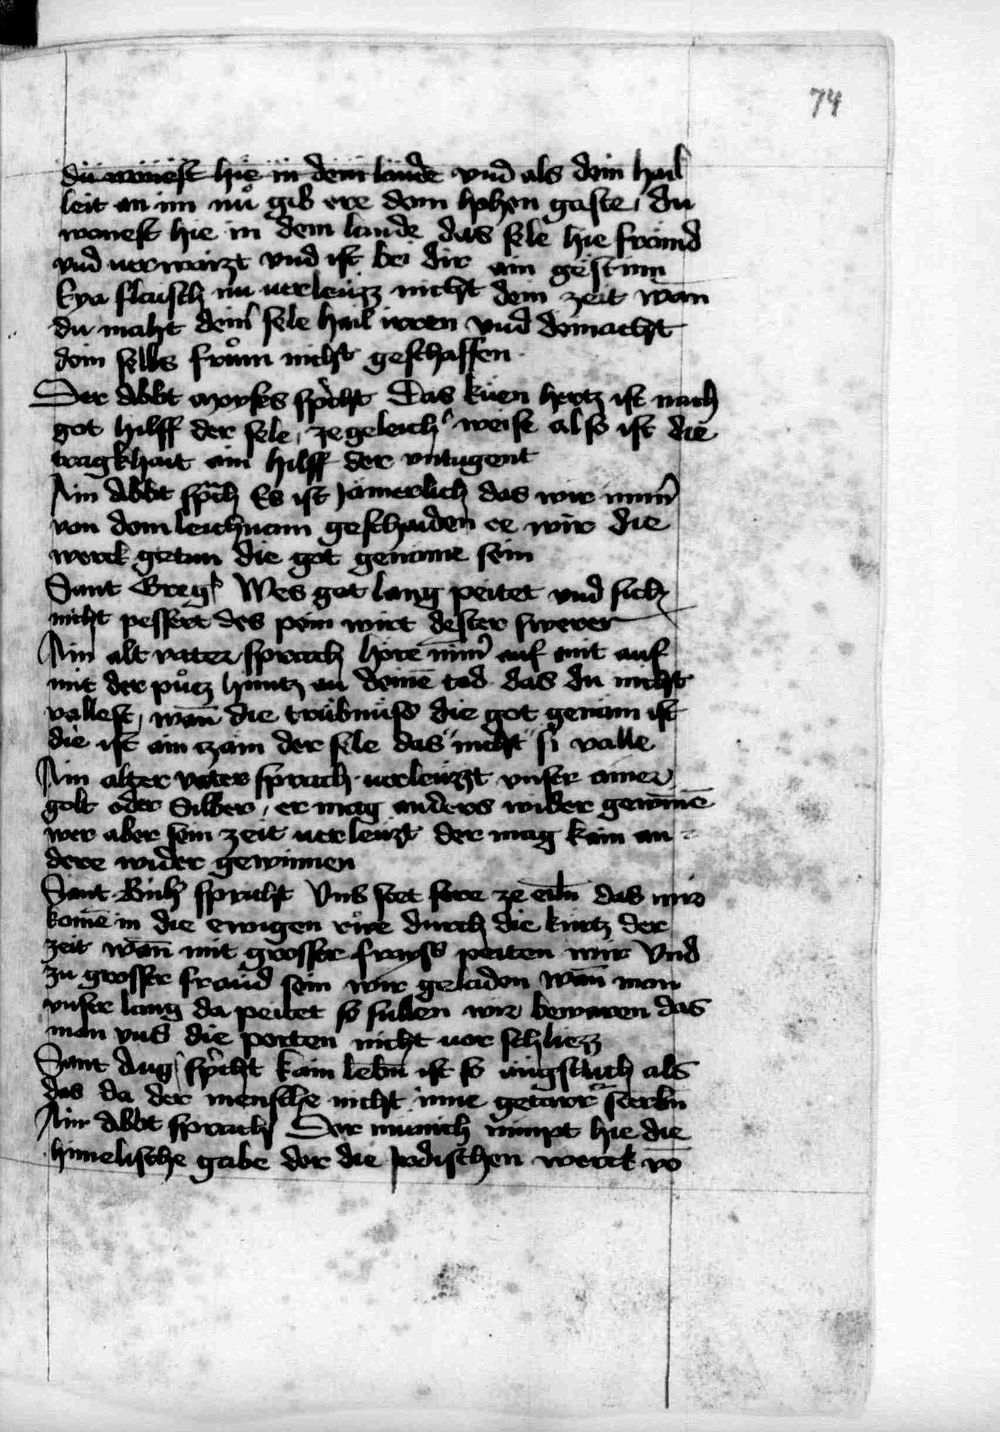 74
du wonest hie in dem lande vnd als dein hail
leit an im nuͦ gib ere dem hohen gaste / du
wonest hie in dem lande das sele hie främd
vnd verwarzt vnd ist bei dir ain gestinn
Eya flaisch nu verleuzz nicht dein zeit wan̄
du maht deinˀ sele hail irren vnd domacht
dein selbs fruͦm nicht geschaffen ·
Der Abbt moyses sp̃cht Das kuen hertz ist nach
got hilff der sele / ze geleichˀ weise also ist die
tragkhait ain hilff der vntugent
Ain Abbt sp̃ch Es ist Jamerlich das wir nimˀ
von dem leichnam geschaiden ee wir die
werck getun die got genäme sein
Sant Gregˀ Wes got lang peitet vnd sich
nicht pessert des pein wirt dester swerer
Ain alt vater sprach höre nimˀ auf mit auf
mit der puͦtz huntz an deinē tod das du nicht
vallest / wan̄ die trübnuss die got genäm ist
die ist ain zäm der sele das nicht si valle
Ain alter vater sprach · verleuzzt vnser ainer
golt oder Silber / er mag anders wider gewinnē
wer aber sein zeit verleuzt der mag kain an=
dere wider gewinnen
Sant spricht Vns stet sere ze eiln̄ das wir
komē in die ewigen ruͦe durch die kurtz der
zeit wan̄ mit grosser frayss peiten wir Vnd
zu grosser fräud sein wir geladen wan̄ man
vnser lang da peitet so sullen wir bewaren das
man vns die porten nicht vor schliezz
Sant Augˀ sp̃cht kain leben̄ ist so angstlich als
das da der mensche nicht inne getarr sterbn̄
Ain Abbt sprach Der munich nimpt hie die
himelische gabe der die Jrdischen werck vō